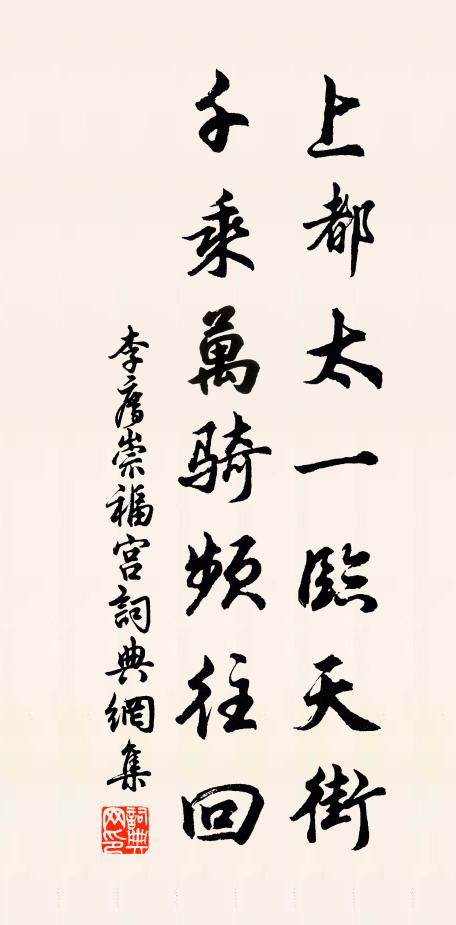 上都太一臨天街
千乘萬騎頻往回
李廌崇福宮詞典網集
詞典網印